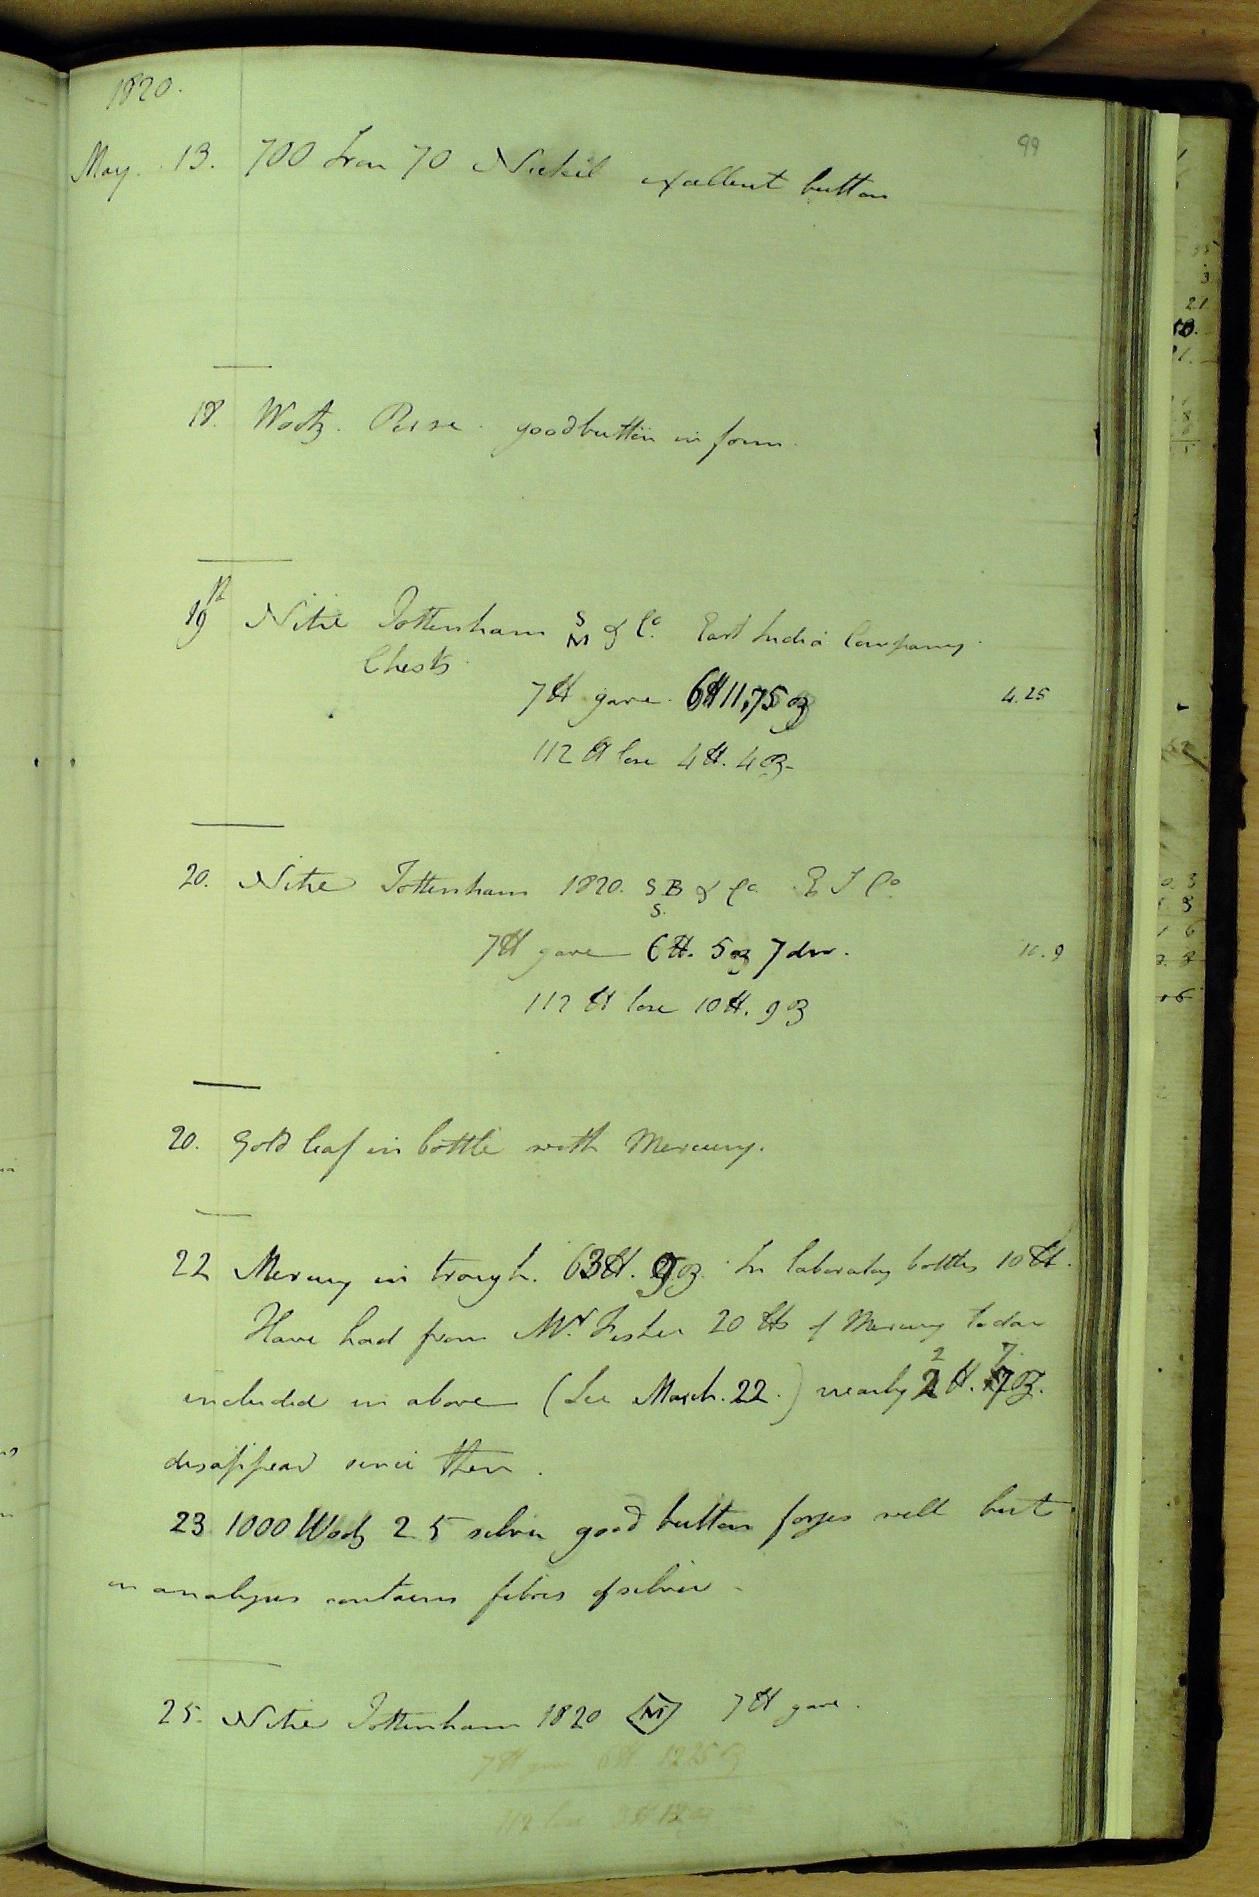 1820.
99
May. 13. 700 Iron 70 Nickel excellent button
18. Wootz. good button in form.
19th Nitre Tottenham S M & Co. East India Company.
Chests.
7 ℔ gave. 6 ℔ 11,75 oz 4.25
112 ℔ lose 4 ℔. 4 oz.
20. Nitre Tottenham 1820. S B S. & Co. E I Co.
7 ℔ gave 6 ℔. 5 oz 7 dw. 10.9
112 ℔ lose 10 ℔. 9 oz
20. Gold leaf in bottle with Mercury.
22 Mercury in trough. 63 ℔. 9 oz. In laboratory bottles 10 ℔.
Have had from Mr. 20 ℔s of Mercury
included in above (See March. 22.) nearly 2 ℔. 7 oz.
disappear since then.
23 1000 Wootz 25 silver good button forges well but
on analysis contains fibres of silver
25. Nitre Tottenham 1820 M 7 ℔ gave.